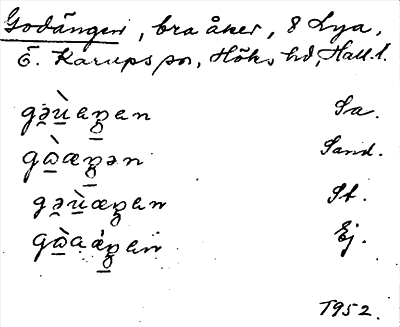 Godängen, bra åker, 8 Lya,
Ö. Karups sn, Höks hd, Hall. l.
gə̯ù̱aŋ̱ən Sa.
gὼ̱æŋ̱ən Sand.
gə̯ù̱æŋ̱ən St.
gὼ̱aáŋ̱en Ej.
1952.